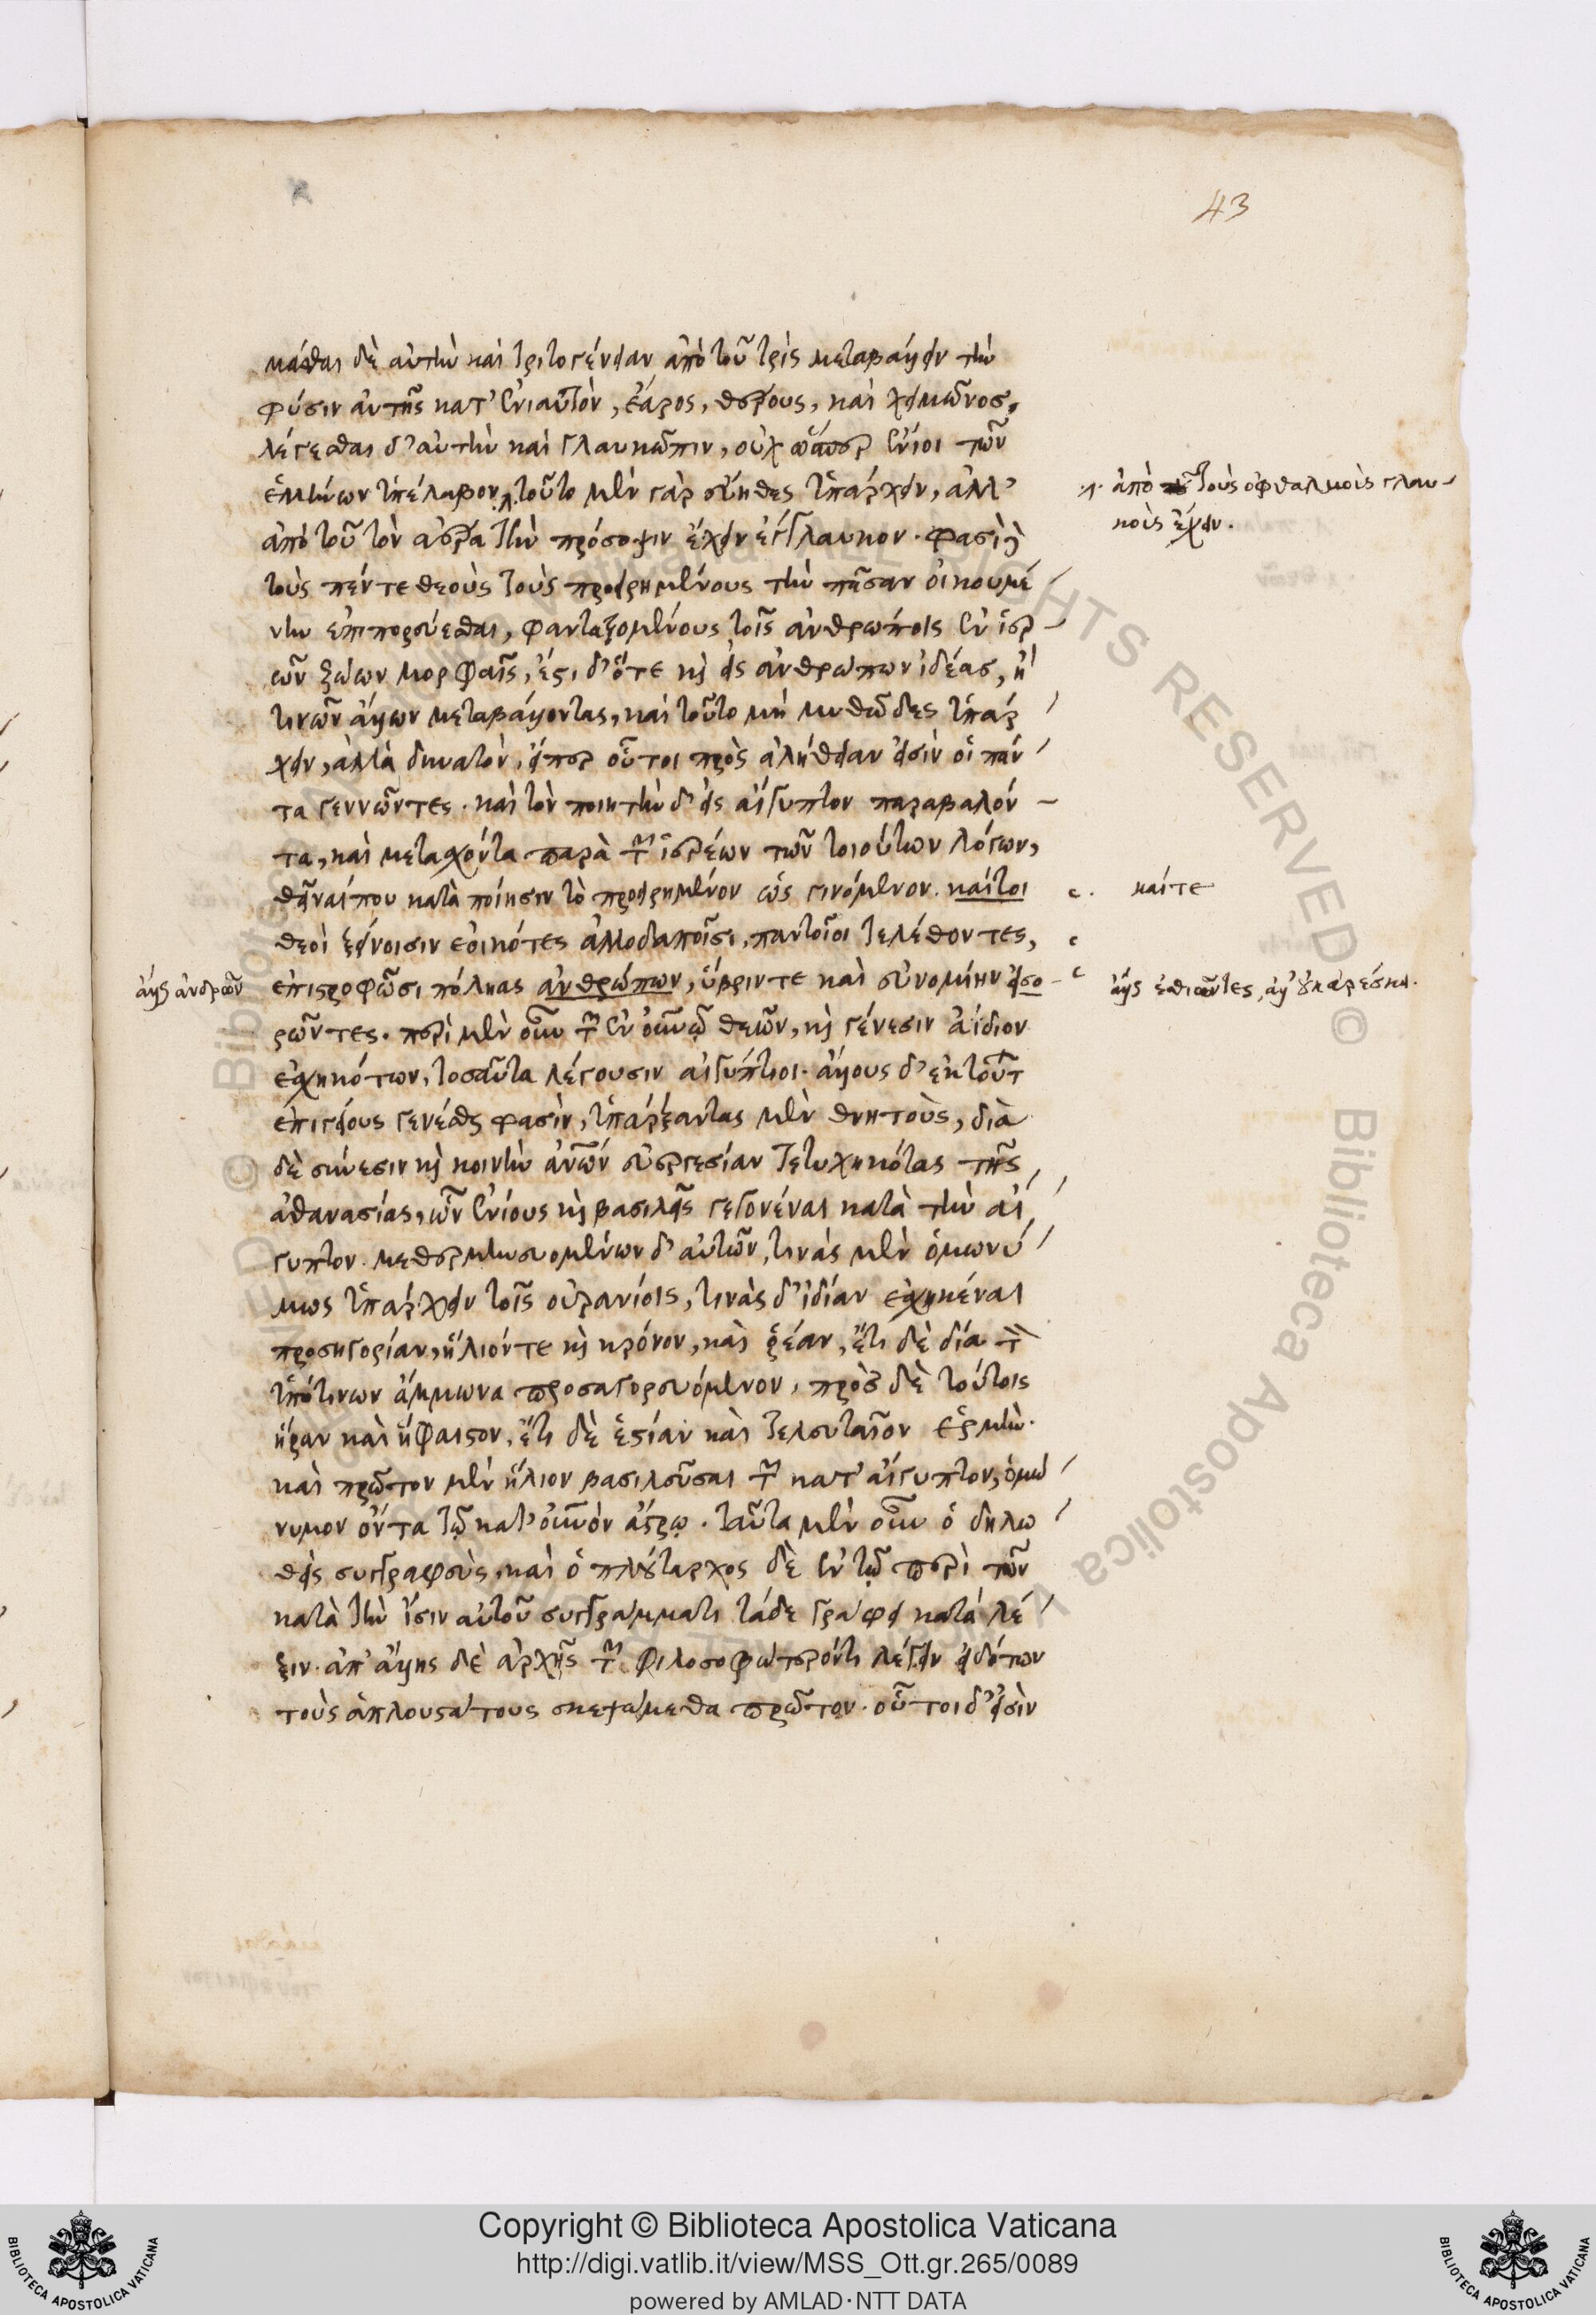 43
μάσθαι δὲ αὐτὴν καὶ τριτογένειαν ἀπὸ τοῦ τρὶς μεταβάλλειν τὴν
φύσιν αὐτῆς κατ' ἐνιαυτὸν, ἔαρος, θέρους, καὶ χειμῶνος.
λέγεσθαι δ' αὐτὴν καὶ γλαυκῶπιν, οὐχ ὥσπερ ἔνιοι τῶν
ἑλλήνων ὑπέλαβον, τοῦτο μὲν γὰρ εὔηθες ὑπάρχειν, ἀλλ'
ἀπὸ τοῦ τὸν ἀέρα τὴν πρόσοψιν ἔχειν ἔγγλαυκον. φασὶ δὲ
τοὺς πέντε θεοὺς τοὺς προειρημένους τὴν πᾶσαν οἰκουμέ
νην ἐπιπορεύεσθαι, φανταζομένους τοῖς ἀνθρώποις ἐν ἱερ
ῶν ζώων μορφαῖς, ἔστι δ' ὅτε κὶ εἰς ἀνθρώπων ἰδέας, ἤ
τινων ἄλλων μεταβάλλοντας, καὶ τοῦτο μὴ μυθῶδες ὑπάρ
χειν, ἀλλὰ δυνατὸν, εἴπερ οὗτοι πρὸς ἀλήθειαν εἰσὶν οἱ πάν
τα γεννῶντες. καὶ τὸν ποιητὴν δ' εἰς αἴγυπτον παραβαλόν
τα, καὶ μετασχόντα παρὰ τῶν ἱερέων τῶν τοιούτων λόγων,
θεῖναί που κατὰ ποίησιν τὸ προειρημένον ὡς γινόμενον. καίτοι
θεοὶ ξείνοισιν ἐοικότες ἀλλοδαποῖσι, παντοῖοι τελέθοντες,
ἐπιστροφῶσι πόληας ἀνθρώπων, ὕβριν τε καὶ εὐνομίην εἰσο
ρῶντες. περὶ μὲν οὖν τῶν ἐν οὐνῷ θεῶν, κὶ γένεσιν ἀΐδιον
ἐσχηκότων, τοσαῦτα λέγουσιν αἰγύπτιοι. ἄλλους δ' ἐκ τούτ
ἐπιγείους γενέσθαι φασὶν, ὑπάρξαντας μὲν θνητοὺς, διὰ
δὲ σύνεσιν κὶ κοινὴν ἀνων εὐεργεσίαν τετυχηκότας τῆς
ἀθανασίας, ὧν ἐνίους κὶ βασιλεῖς γεγονέναι κατὰ τὴν αἴ
γυπτον. μεθερμηνευομένων δ' αὐτῶν, τινὰς μὲν ὁμωνύ
μως ὑπάρχειν τοῖς οὐρανίοις, τινὰς δ' ἰδίαν ἐσχηκέναι
προσηγορίαν, ἥλιόν τε κὶ κρόνον, καὶ ῥέαν, ἔτι δὲ δία τὸν
ὑπό τινων ἄμμωνα προσαγορευόμενον, πρὸς δὲ τούτοις
ἥραν καὶ ἥφαιστον, ἔτι δὲ ἑστίαν καὶ τελευταῖον ἑρμῆν.
καὶ πρῶτον μὲν ἥλιον βασιλεῦσαι τῶν κατ' αἴγυπτον, ὁμώ
νυμον ὄντα τῷ κατ' οὐνὸν ἄστρῳ. ταῦτα μὲν οὖν ὁ δηλω
θεὶς συγγραφεὺς, καὶ ὁ πλούταρχος δὲ ἐν τῷ περὶ τῶν
κατὰ τὴν ἶσιν αὐτοῦ συγγράμματι τάδε γράφει κατὰ λέ
ξιν. ἀπ' ἄλλης δὲ ἀρχῆς τῶν φιλοσοφώτερόν τι λέγειν εἰδότων
τοὺς ἁπλουστάτους σκεψώμεθα πρῶτον. οὗτοι δ' εἰσὶν
ἀπὸ τοῦ τοὺς ὀφθαλμοὺς γλαυ-
κοὺς ἔχειν.
καί τε
ἄλλως ἀνδρῶν